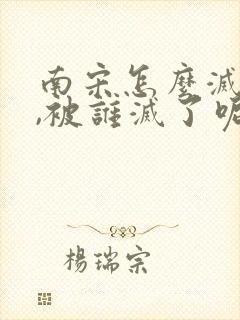 南宋怎麼滅
,被誰滅了呢
楊瑞宗